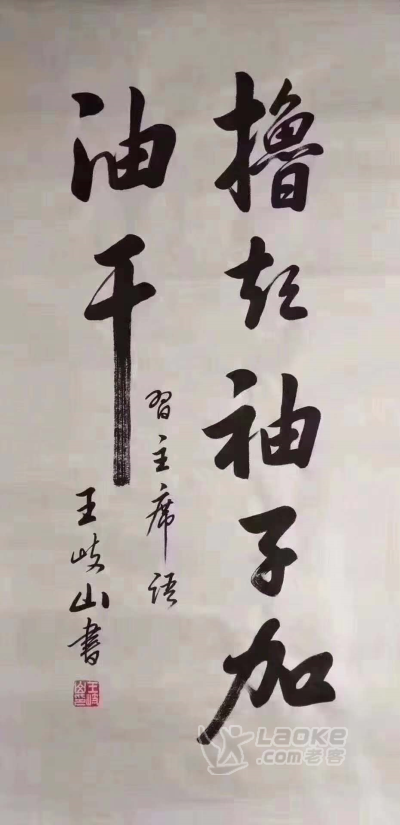 撸起袖子加
油干
習主席语
王岐山書
王岐山
Laoke
.com老客